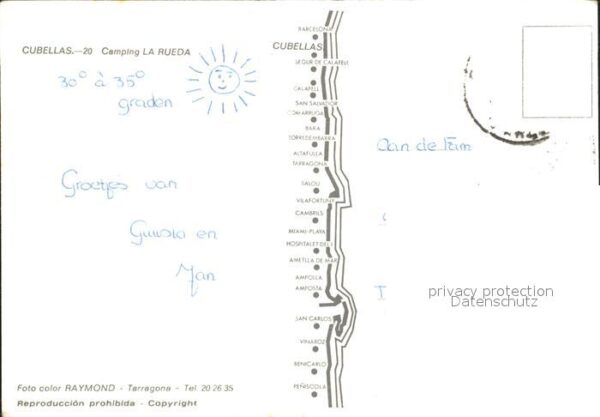 CUBELLAS.—20 Camping LA RUEDA
30° à 35°
graden
Groetjes van
en
Jan
Foto color RAYMOND - Tarragona - Tel. 20 26 35
Reproducción prohibida - Copyright
BARCELONA
CUBELLAS
SEGUR DE CALAFELL
CALAFELL
SAN SALVADOR
COMARRUGA
BARA
TORREDEMBARRA
ALTAFULLA
TARRAGONA
SALOU
VILAFORTUNY
CAMBRILS
MIAMI-PLAYA
HOSPITALET DEL I.
AMETLLA DE MAR
AMPOLLA
AMPOSTA
SAN CARLOS
VINAROZ
BENICARLO
PEÑISCOLA
Aan de Fam
privacy protection
Datenschutz